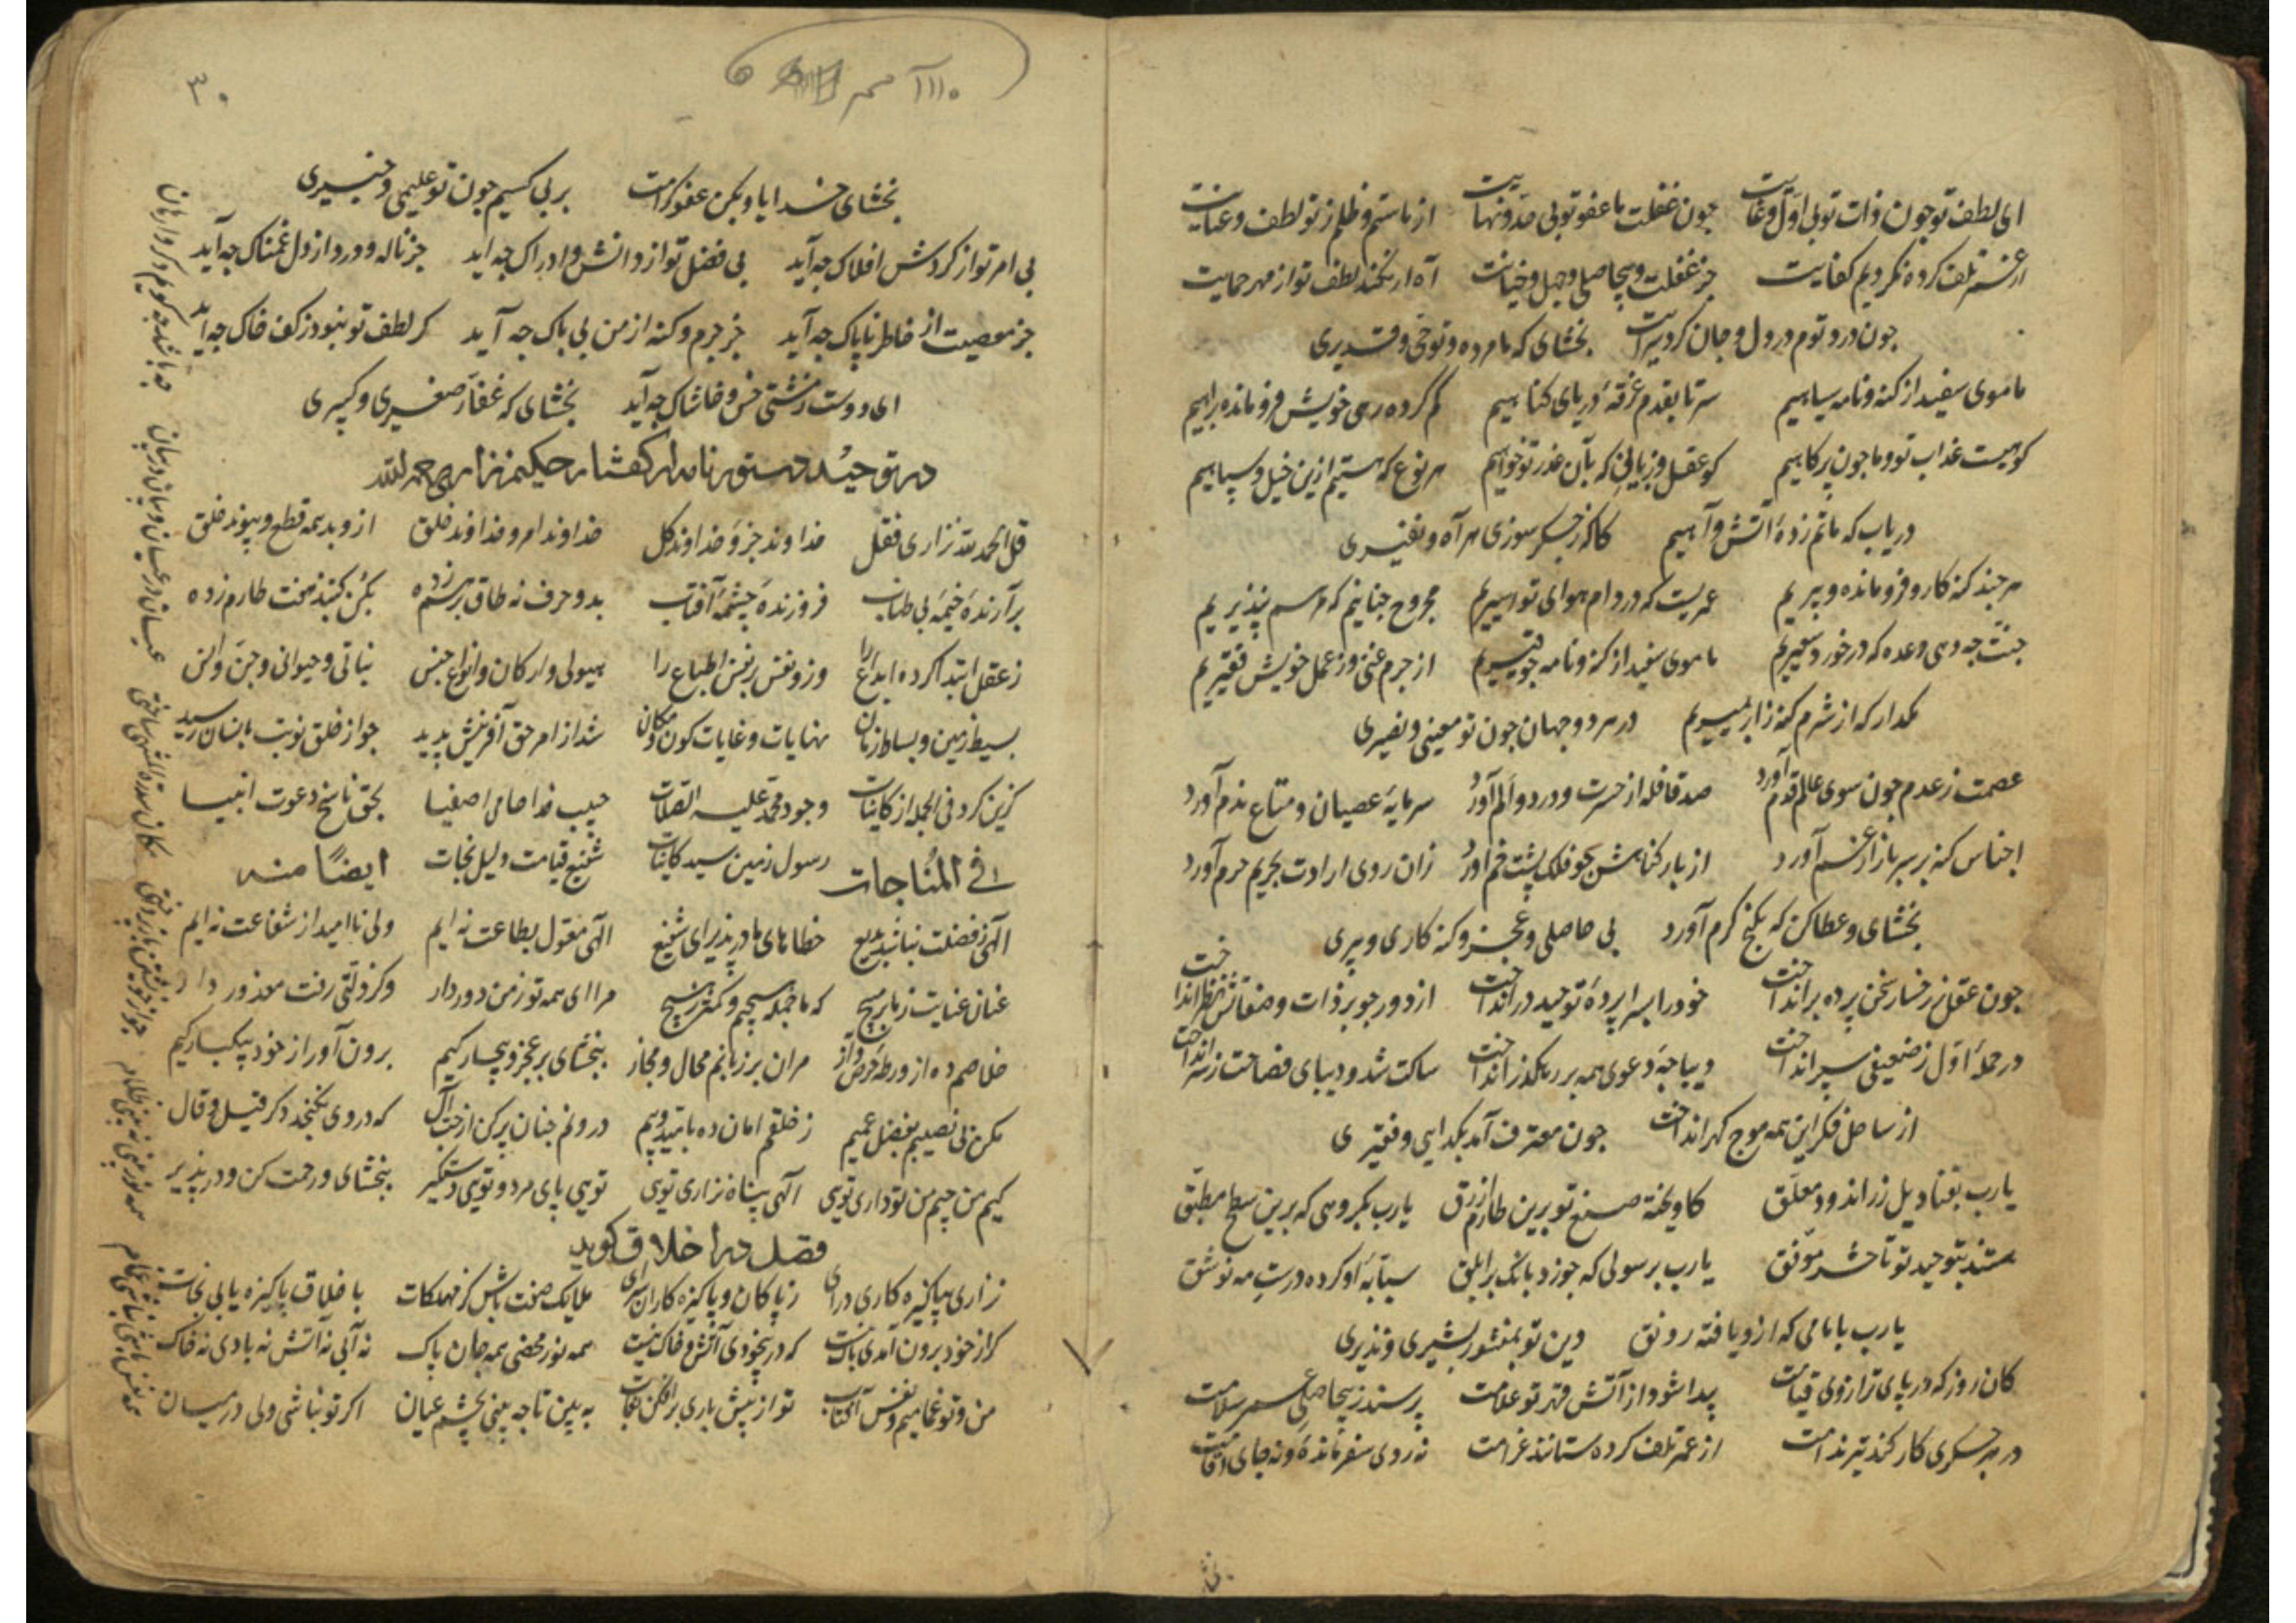 ای لطف تو چون ذات تو بی اول و غایت چون غفلت ما عفو تو بی حد و نهایت از ما ستم و ظلم ز تو لطف و عنایت
از عمر تلف کرده نکردیم کفایت جز غفلت و بیحاصلی و جهل و خیانت آه ار نکند لطف تو از مهر حمایت
چون درد توم در دل و جان کرد سرایت بخشای که ما مرده و تو حی و قدیری
ما موی سفید از کنه و نامه سیاهیم سر تا بقدم غرقهٔ دریای کناهیم کم کرده رهی خویش و فرو مانده براهیم
کوهیست عذاب تو و ما چون پر کاهیم کو عقل و زبانی که بآن عذر تو خواهیم هر نوع که هستیم ازین خیل و سپاهیم
دریاب که ماتم زدهٔ آتش و آهیم کاکه ز جکر سوزی هر آه و نفیری
هر چند کنه کار و فرو مانده و پیریم عمریست که در دام هوای تو اسیریم مجروح چنانیم که مرهم نپذیریم
جنت چه دهی وعده که در خورد سعیریم ما موی سفید از کنه و نامه چو قیریم از جرم غنی وز عمل خویش فقیریم
مکذار که از شرم کنه زار بمیریم در هر دو جهان چون تو معینی و نصیری
عصمت ز عدم چون سوی عالم قدم آورد صد قافله از حسرت و درد و الم آورد سرمایهٔ عصیان و متاع ندم آورد
اجناس کنه بر سر بازار غم آورد از بار کناهش چو فلک پشت خم آورد زان روی ارادت بحریم حرم آورد
بخشای و عطا کن که بکنج کرم آورد بی حاصلی و عجز و کنه کاری و پیری
چون عقل ز رخسار سخن پرده بر انداخت خود را بسرا پردهٔ توحید در انداخت از دور چو بر ذات و صفاتش نظر انداخت
در حملهٔ اول ز ضعیفی سپر انداخت دیباچهٔ دعوی همه بر رهکذر انداخت ساکت شد و دیبای فصاحت ز سر انداخت
از ساحل فکر این همه موج کهر انداخت چون معترف آمد بکدایی و فقیری
یارب بقنادیل زر اندود معلق کاویخته صنع تو برین طارم ازرق یارب بکروهی که برین سطح مطبق
هستند بتوحید تو تا حشر موفق یارب برسولی که چو زد بانک بر ابلق سبابهٔ او کرده درست مه نو شق
یارب بامامی که ازو یافته رونق دین تو بمنشور بشیری و نذیری
کان روز که در پای ترازوی قیامت پیدا شود از آتش قهر تو علامت پرسند ز بیحاصلی عمر سلامت
در هر جکری کار کند تیر ندامت از عمر تلف کرده ستانند غرامت نه روی سفر مانده و نه جای اقامت
۳۰
بخشای خدایا و بکن عفو و کرامت بر بی کسیم چون تو علیمی و خبیری
بی امر تو از کردش افلاک چه آید بی فضل تو از دانش و ادراک چه آید جز ناله و درد از دل غمناک چه آید
جز معصیت از خاطر ناپاک چه آید جز جرم و کنه از من بی باک چه آید کر لطف تو نبود ز کف خاک چه آید
ای دوست ز مشتی خس و خاشاک چه آید بخشای که غفار صغیری و کبیری
در توحید دستور نامه از کفتار حکیم نزاری رحمه الله
قل الحمد لله نزاری فقل خداوند جزو و خداوند کل خداوند امر و خداوند خلق ازو بد همه قطع و پیوند خلق
برآرندهٔ خیمهٔ بی طناب فروزندهٔ چشمهٔ آفتاب بدو حرف نه طاق بر هم زده بکن کنبد هفت طارم زده
ز عقل ابتدا کرده ابداع را وزو نفس بر نفس اطباع را هیولی و ارکان و انواع جنس نباتی و حیوانی و جن و انس
بسیط زمین و بساط زمان نهایات و غایات کون و مکان شد از امر حق آفرینش پدید چو از خلق نوبت بانسان رسید
کزین کرد فی الجمله از کاینات وجود محمد علیه الصلات حبیب خدا حامی اصفیا بحق ناسخ دعوت انبیا
رسول زمین سید کاینات شفیع قیامت دلیل نجات
فی المناجات ایضا منه
الهی ز فضلت نباشد بدیع خطاهای ما در پذیر ای شفیع الهی مقول بطاعت نه ایم ولی ناامید از شفاعت نه ایم
عنان عنایت ز ما بر مپیچ که ما جمله هیچیم و کمتر ز هیچ مرا ای همه تو ز من دور دار وکر زلتی رفت معذور دار
خلاصم ده از ورطهٔ حرص و آز مران بر زبانم محال و مجاز ببخشای بر عجز و بیچارکیم برون آور از خود بیکبارکیم
مکن بی نصیبم بفضل عمیم ز خلقم امان ده بامید و بیم درونم چنان پر کن از حب آل که در وی نکنجد دکر قیل و قال
کیم من چیم من تو داری تویی الهی پناه نزاری تویی تویی پای مرد و تویی دستکیر ببخشای و رحمت کن و در پذیر
فصل در اخلاق کوید
نزاری بپاکیزه کاری درای ز پاکان و پاکیزه کاران سرای ملایک صفت باش کز مهلکات باخلاق پاکیزه یابی نجات
کر از خود برون آمدی باک نیست که در بیخودی آتش و خاک نیست همه نور محضی همه جان پاک نه آبی نه آتش نه بادی نه خاک
من و تو غماییم و نفس آفتاب تو از پیش باری بر افکن نقاب ببین تا چه بینی بچشم عیان اکر تو نباشی ولی در میان